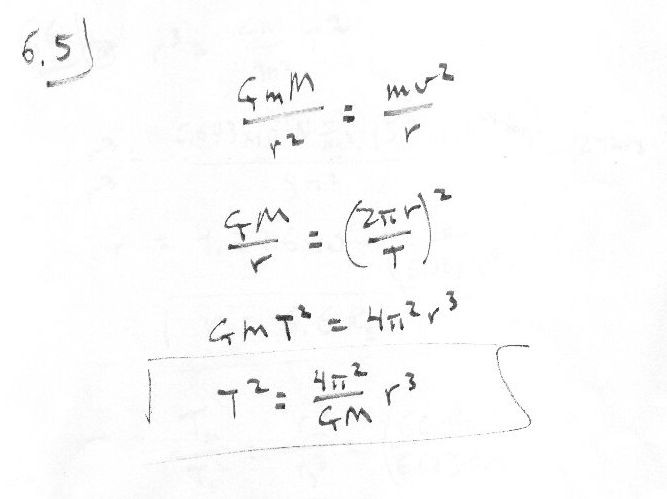 6.5)
GmM/r² = mv²/r
GM/r = (2πr/T)²
GmT² = 4π²r³
T² = 4π²/GM r³